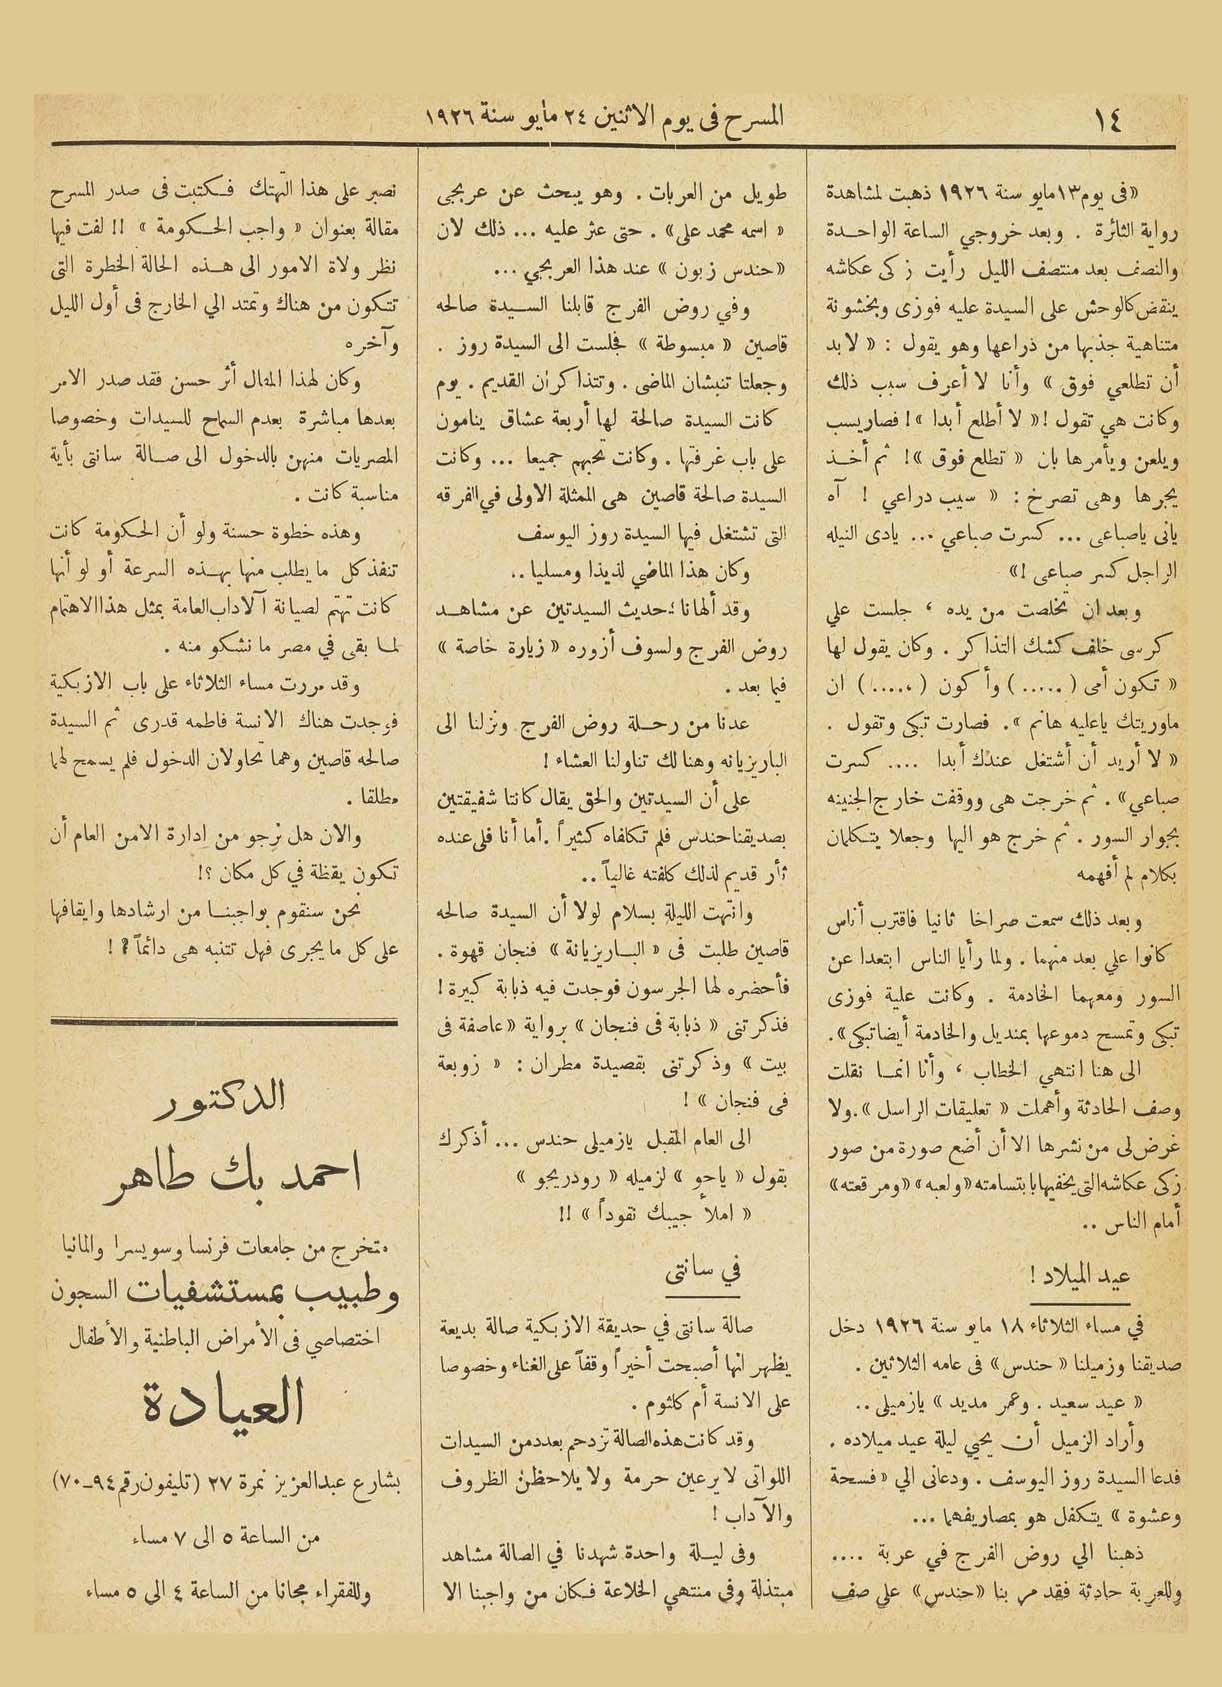 ١٤
المسرح فى يوم الاثنين ٢٤ مايو سنة ١٩٢٦
«فى يوم ١٣ مايو سنة ١٩٢٦ ذهبت لمشاهدة
رواية الثائرة . وبعد خروجي الساعة الواحدة
والنصف بعد منتصف الليل رأيت زكى عكاشه
ينقض كالوحش على السيدة عليه فوزى وبخشونة
متناهية جذبها من ذراعها وهو يقول : « لا بد
أن تطلعي فوق » وأنا لا أعرف سبب ذلك
وكانت هي تقول !« لا أطلع أبدا »! فصار يسب
ويلعن ويأمرها بان « تطلع فوق »! ثم أخذ
يجرها وهى تصرخ : « سيب دراعي ! آه
يانى ياصباعى ... كسرت صباعي ... يادى النيله
الراجل كسر صباعى !»
وبعد ان تخلصت من يده ، جلست علي
كرسى خلف كشك التذاكر . وكان يقول لها
« تكون أمى (.....) وأكون (.....) ان
ماوريتك ياعليه هانم ». فصارت تبكى وتقول .
« لا أريد أن أشتغل عندك أبدا .... كسرت
صباعي» . ثم خرجت هى ووقفت خارج الجنينه
بجوار السور . ثم خرج هو اليها وجعلا يتكلمان
بكلام لم أفهمه
وبعد ذلك سمعت صراخا ثانيا فاقترب أناس
كانوا علي بعد منهما . ولما رأيا الناس ابتعدا عن
السور ومعهما الخادمة . وكانت علية فوزى
تبكى وتمسح دموعها بمنديل والخادمة أيضا تبكى».
الى هنا انتهي الخطاب ، وأنا انما نقلت
وصف الحادثة وأهملت « تعليقات الراسل ».ولا
غرض لى من نشرها الا أن أضع صورة من صور
زكى عكاشه التى يخفيها بابتسامته «ولعبه» «ومرقعته»
أمام الناس ..
عيد الميلاد !
في مساء الثلاثاء ١٨ مايو سنة ١٩٢٦ دخل
صديقنا وزميلنا « حندس» فى عامه الثلاثين .
« عيد سعيد . وعمر مديد » يازميلى ..
وأراد الزميل أن يحيي ليلة عيد ميلاده .
فدعا السيدة روز اليوسف . ودعانى الي « فسحة
وعشوة » يتكفل هو بمصاريفهما ...
ذهبنا الي روض الفرج في عربة ....
وللعربة حادثة فقد مر بنا «حندس» على صف
طويل من العربات . وهو يبحث عن عربجى
« اسمه محمد على» . حتى عثر عليه ... ذلك لان
«حندس زبون » عند هذا العربجي ...
وفي روض الفرج قابلنا السيدة صالحه
قاصين « مبسوطة » فجلست الى السيدة روز .
وجعلتا تنبشان الماضى . وتتذاكران القديم . يوم
كانت السيدة صالحة لها أربعة عشاق ينامون
على باب غرفتها . وكانت تحبهم جميعا ... وكانت
السيدة صالحة قاصين هى الممثلة الاولى في الفرقه
التى تشتغل فيها السيدة روز اليوسف
وكان هذا الماضي لذيذا ومسليا ..
وقد ألهانا حديث السيدتين عن مشاهد
روض الفرج ولسوف أزوره « زيارة خاصة »
فيما بعد .
عدنا من رحلة روض الفرج ونزلنا الى
الباريزيانه وهنالك تناولنا العشاء !
على أن السيدتين والحق يقال كانتا شفيقتين
بصديقنا حندس فلم تكلفاه كثيراً . أما أنا فلى عنده
ثأر قديم لذلك كلفته غالياً ..
وانتهت الليلة بسلام لولا أن السيدة صالحه
قاصين طلبت فى « الباريزيانة » فنجان قهوة .
فأحضره لها الجرسون فوجدت فيه ذبابة كبيرة !
فذكرتنى « ذبابة فى فنجان » برواية « عاصفة فى
بيت » وذكرتنى بقصيدة مطران : « زوبعة
فى فنجان » !
الى العام المقبل يازميلى حندس ... أذكرك
بقول « ياحو » لزميله « رودريجو »
« املأ جيبك نقوداً » !!
في سانتى
صالة سانتى في حديقة الازبكية صالة بديعة
يظهر انها أصبحت أخيراً وقفاً على الغناء وخصوصا
على الانسة أم كلثوم .
وقد كانت هذه الصالة تزدحم بعدد من السيدات
اللواتى لا يرعين حرمة ولا يلاحظن الظروف
والآداب !
وفى ليلة واحدة شهدنا في الصالة مشاهد
مبتذلة وفى منتهي الخلاعة فكان من واجبنا الا
نصبر على هذا التهتك فكتبت فى صدر المسرح
مقالة بعنوان « واجب الحكومة » !! لفت فيها
نظر ولاة الامور الى هذه الحالة الخطرة التى
تتكون من هناك وتمتد الي الخارج فى أول الليل
وآخره
وكان لهذا المقال أثر حسن فقد صدر الامر
بعدها مباشرة بعدم السماح للسيدات وخصوصا
المصريات منهن بالدخول الى صالة سانتى بأية
مناسبة كانت .
وهذه خطوة حسنة ولو أن الحكومة كانت
تنفذ كل ما يطلب منها بهذه السرعة أو لو أنها
كانت تهتم لصيانة الآداب العامة بمثل هذا الاهتمام
لما بقى في مصر ما نشكو منه .
وقد مررت مساء الثلاثاء على باب الازبكية
فوجدت هناك الانسة فاطمه قدرى ثم السيدة
صالحه قاصين وهما تحاولان الدخول فلم يسمح لهما
مطلقا .
والان هل نرجو من إدارة الامن العام أن
تكون يقظة في كل مكان ؟!
نحن سنقوم بواجبنا من ارشادها وايقافها
على كل ما يجرى فهل تتنبه هى دائماً ؟ !
الدكتور
احمد بك طاهر
متخرج من جامعات فرنسا وسويسرا والمانيا
وطبيب بمستشفيات السجون
اختصاصي فى الأمراض الباطنية والأطفال
العيادة
بشارع عبدالعزيز نمرة ٢٧ (تليفون رقم ٩٤-٧٠)
من الساعة ٥ الى ٧ مساء
وللفقراء مجانا من الساعة ٤ الى ٥ مساء